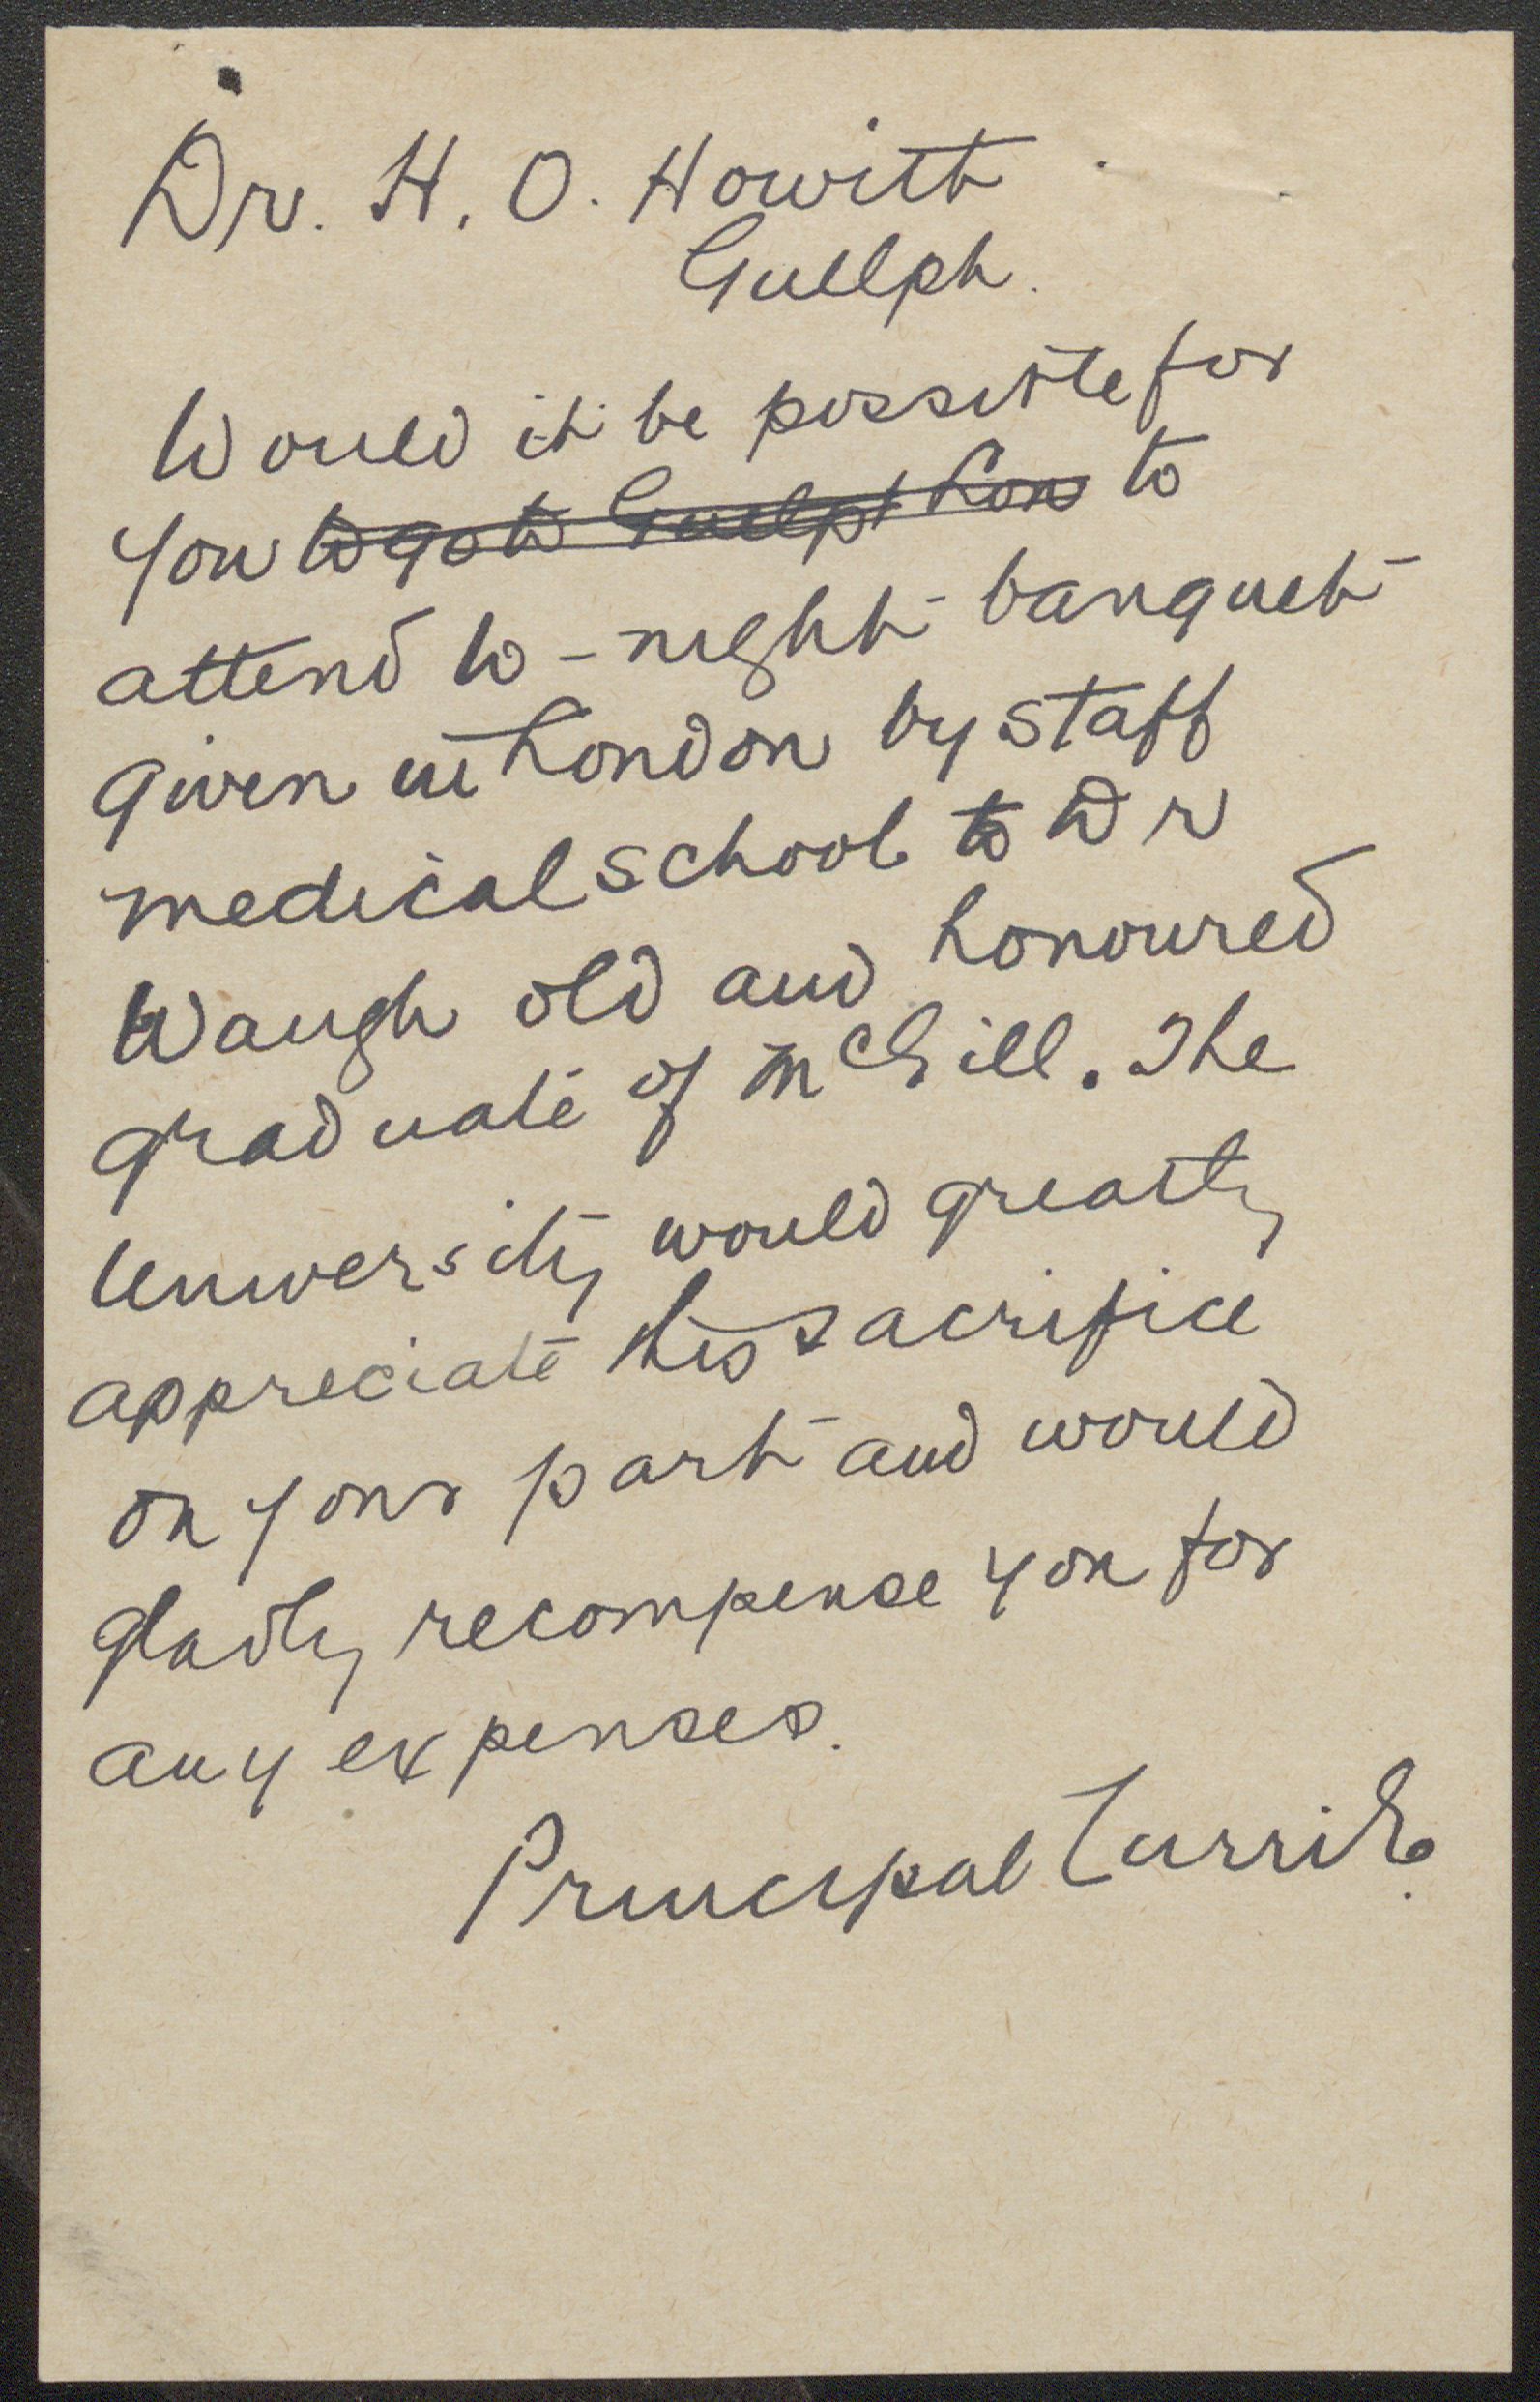 Dr. H. O. Howitt
Guelph.
Would it be possible for
you to go to Guelph Lon to
attend to-night banquet
given in London by staff
medical school to Dr
Waugh old and honoured
graduate of McGill. The
University would greatly
appreciate this sacrifice
on your part and would
gladly recompense you for
any expenses.
Principal Currie.